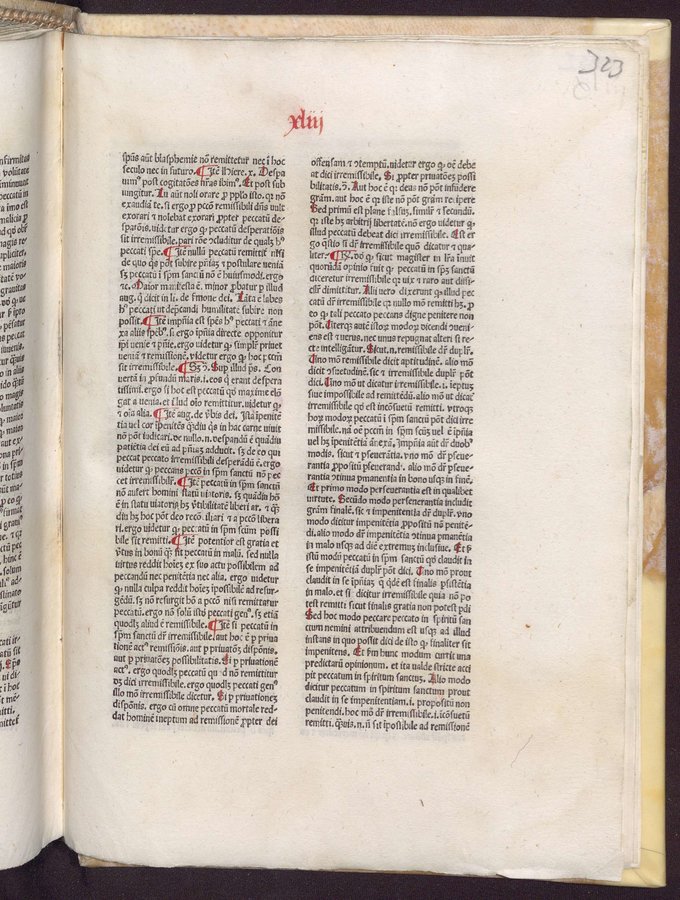 323
xliij
spūs aūt blasphemie nō remittetur nec i hoc
seculo nec in futuro. ¶ Itē Hiere. x. Despa
uimꝰ post cogitatões nr̄as ibimꝰ. Et post sub
iungitur. Tu aūt noli orare ꝓ ppl̓o isto. qꝛ nō
exaudiā te. si ergo ꝓ pccō remissibili dn̄s uult
exorari ⁊ nolebat exorari ꝓpter peccatū de-
sparōis. uidetur ergo ꝙ peccatū desperatiōis
sit irremissibile. pari rōne ↄcluditur de qualꝫ hꝰ
peccati spē. ¶ Itē nulla peccatū remittit̓ nisi
de quo qͥs pōt subire pn̄iaꝫ ⁊ postulare ueniā
sꝫ peccatū i spm̄ sanctū nō ē huiusmodi. ergo
⁊c. Maior manifesta ē. minor ꝓbatur ꝑ illud
aug. ꝙ dicit in li. de sermone dei. Tāta ē labes
hꝰ peccati ut dep̄candi humilitatē subire non
possit. ¶ Itē impn̄ia est spēs hꝰ peccati ⁊ āne
xa aliis spēbꝰ. s. ergo īpn̄ia directe opponitur
ip̄i uenie ⁊ pn̄ie. ergo uidetur ꝙ simpl̓r priuet
veniā ⁊ remissionē. videtur ergo ꝙ hoc pccm̄
sit irremissibile. ¶ Sꝫ ↄ̄. Sup illud ps̄. Con
vertā in ꝓfundū maris. i. eos ꝗ erant despera
tissimi. ergo si hoc est peccatū qd̓ maxime elō
gat a uenia. et illud oīo remittitur. uidetur ꝙ
⁊ oīa alia. ¶ Itē aug. de ṽbis dei. Ista īpenitē
tia vel cor īpenitēs ꝗ̄diu qͥs in hac carne viuit
nō pōt iudicari. de nullo. n. despandū ē quādiu
patientia dei eū ad pn̄iaꝫ adducit. sꝫ de eo qui
peccat peccato irremissibili desperādū ē. ergo
videtur ꝙ peccans pccō in spm̄ sanctū nō pec
cet irremissibil̓r. ¶ Itē peccatū in spm̄ sanctū
nō aufert homini statū viatoris. sꝫ quādiu hō
ē in statu viatoris hꝫ ṽtibilitatē liberi ar. ⁊ ꝗ̄
diu hꝫ hoc pōt deo recōciliari ⁊ a pccō libera
ri. ergo uidetur ꝙ peccatū in spm̄ scūm possi
bile sit remitti. ¶ Itē potentior est gratia et
ṽtus in bonū ꝙ̄ sit peccatū in malū. sed nulla
virtus reddit hoīeꝫ ex suo actu possibilem ad
peccandū nec penitētia nec alia. ergo uidetur
ꝙ nulla culpa reddit hoīeꝫ īpossibilē ad resur-
gēdū. sꝫ nō resurgit hō a pccō nisi remittatur
peccatū. ergo nō solū istō peccati genꝰ. sꝫ etiā
quodlꝫ aliud ē remissibile. ¶ Itē si peccatū in
spm̄ sanctū dr̄ irremissibile. aut hoc ē ꝑ priua
tionē actꝰ remissiōis. aut ꝑ priuatōꝫ dispōnis.
aut ꝑ priuatōeꝫ possibilitatis. Si ꝑ priuationē
actꝰ. ergo quodlꝫ peccatū qn̄dō nō remittitur
dꝫ dici irremissibile. ergo quodlꝫ peccati genꝰ
illo mō irremissibile dicetur. Si ꝑ priuationeꝫ
dispōnis. ergo cū omne peccatū mortale red-
dat hominē ineptum ad remissionē ꝓpter dei
offensam ⁊ ↄtemptū. uidetur ergo ꝙ oē debe
at dici irremissibile. Si ꝓpter priuatōeꝫ possi
bilitatis. ↄ̄. Aut hoc ē qꝛ deus nō pōt infūdere
gr̄am. aut hoc ē qꝛ iste nō pōt gr̄am recipere
Sed primū est plane falsuꝫ. similr̄ ⁊ secundū.
qꝛ iste hꝫ arbitrij libertatē. nō ergo uidetur ꝙ
illud peccatū debeat dici irremissibile. Est er
go q̄stio si dr̄ irremissibile quō dicatur ⁊ qua
liter. ¶ Rn̄. vo ꝙ sicut magister in lr̄a innuit
quorūdā opinio fuit ꝙ peccatū in spm̄ sanctū
diceretur irremissibile qꝛ uix ⁊ raro aut diffi-
cl̓r dimittitur. Alij uero dixerunt ꝙ illud pec
catū dr̄ irremissibile qꝛ nullo mō remitti hꝫ. ꝓ
eo ꝙ tali peccato peccans digne penitere non
pōt. Uterqꝫ aūt istoꝝ modoꝝ dicendi ↄueni-
ens est ⁊ uerus. nec unus repugnat alteri si re-
cte intelligatur. Sicut. n. remissibile dr̄ dupl̓r.
Uno mō remissibile dicit aptitudinē. alio mō
dicit ↄsuetudinē. sic ⁊ irremissibile dupl̓r pōt
dici. Uno mō ut dicatur irremissibile. i. īeptuꝫ
siue impossibile ad remitēdū. alio mō ut dicat̓
irremissibile qd̓ est incōsuetū remitti. vtroqꝫ
horꝝ modoꝝ peccatū i spm̄ sanctū pōt dici irre
missibile. nā oē peccm̄ in spm̄ scūꝫ uel ē īpn̄ia
uel hꝫ īpenitētiā ānexā. Impn̄ia aūt dr̄ duobꝰ
modis. sicut ⁊ ꝑseuerātia. vno mō dr̄ ꝑseue-
rantia ꝓpositū ꝑseuerandi. alio mō dr̄ ꝑseue-
rātia ↄtinua ꝑmanentia in bono usqꝫ in finē.
Et primo modo perseuerantia est in qualibet
uirtute. Secūdo modo perseuerantia includit
gram finalē. sic ⁊ impenitētia dr̄ dupl̓r. vno
modo dicitur impenitētia ꝓpositū nō penitē-
di. alio modo dr̄ impenitētia ↄtinua ꝑmanētia
in malo usqꝫ ad diē extremuꝫ inclusiue. Et hꝫ
istū modū peccatū in spm̄ sanctū qd̓ claudit in
se impenitētiā dupl̓r pōt dici. Uno mō prout
claudit in se īpn̄iaꝫ qͣ qd̓ē est finalis ꝑsistētia
in malo. et sic dicitur irremissibile quia nō po
test remitti sicut finalis gratia non potest ꝑdi
Sed hoc modo peccare peccato in spiritū san
ctum nemini attribuendum est usqꝫ ad illud
instans in quo possit dici de isto ꝙ finaliter sit
impenitens. Et scd̓m hunc modum currit una
predictarū opinionum. et ita valde stricte acci
pit peccatum in spiritum sanctum. Alio modo
dicitur peccatum in spiritum sanctum prout
claudit in se impenitentiam. i. propositū non
penitendi. hoc mō dr̄ irremissibile. i. icōsuetū
remitti. ꝗ̄uis. n. sit īpossibile ad remissionē